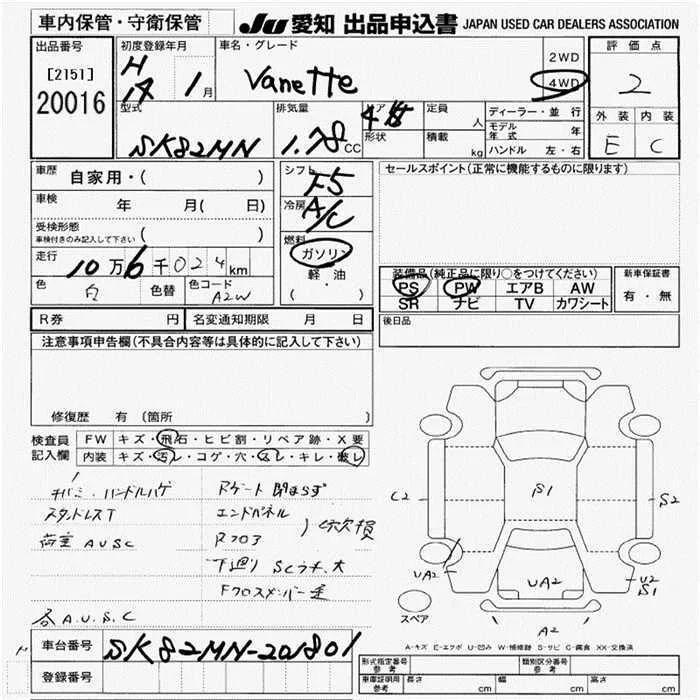 車内保管・守衛保管
JU 愛知 出品申込書 JAPAN USED CAR DEALERS ASSOCIATION
出品番号 初度登録年月 車名・グレード 2WD 評価点
[2151] H
20016 14 1月 Vanette 4WD 2
型式 排気量 ドア 定員 人 ディーラー・並行 外装 内装
モデル年式 年
SK82MN 1.78 CC 形状 積載 kg ハンドル 左・右 E C
車歴 自家用・( ) シフト F5 セールスポイント(正常に機能するものに限ります)
車検 年 月( 日) 冷房 A/C
受検形態
車検付きのみ記入して下さい ( ) 燃料
走行 10万6千024km ガソリン
軽油
( ・ )
装備品(純正品に限り○をつけてください) 新車保証書
色 白 色替 色コード A2W
PS PW エアB AW 有・無
SR ナビ TV カワシート
R券 円 名変通知期限 月 日 後日品
注意事項申告欄(不具合内容等は具体的に記入して下さい)
修復歴 有(箇所
検査員 FW キズ・飛石・ヒビ割・リペア跡・X要
記入欄 内装 キズ・汚レ・コゲ・穴・スレ・キレ・破レ
ハンドルハゲ Rゲート閉まらず
スタッドレスT エンドパネル
荷室 AUSC Rフロア 穴欠損
下廻り SCサキ.大
Fクロスメンバー
各A.U.S.C
C2 S1 S2
UA2 UA2 U2
S1
スペア A2
A-キズ E-エクボ U-凹み W-補修跡 S-サビ C-腐食 XX-交換済
車台番号 SK82MN-201801
登録番号
形式指定番号 参考 類別区分番号 参考
車庫証明用 参考 長さ cm 幅 cm 高さ cm